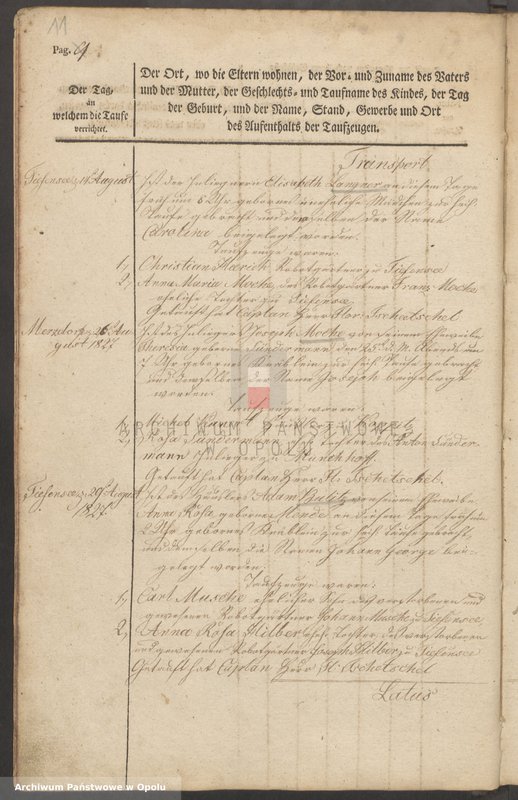 11
Pag. 9
Der Tag,
an
welchem die Taufe
verrichtet.
Der Ort, wo die Eltern wohnen, der Vor- und Zuname des Vaters
und der Mutter, der Geschlechts- und Taufname des Kindes, der Tag
der Geburt, und der Name, Stand, Gewerbe und Ort
des Aufenthalts der Taufzeugen.
Transport
Tiefensee, 14 August
ist der Elisabeth Langner an diesem Tage
früh um 6 Uhr geborene uneheliche Mädchen zur heil.
Taufe gebracht und demselben der Name
Carolina beigelegt worden.
Taufzeuge waren:
1, Christian Robotgärtner zu Tiefensee
2, Anna Maria Mocke, des Robotgärtner Franz Mocke
eheliche Tochter zu Tiefensee
Getauft hat Caplan Herr Flor: Tschetschel
Merzdorf, 26 Au
gust 1827.
ist des Joseph Mocke von seinem Eheweibe
Theresia geborne Lindermann den 25 d. M. Abends um
7 Uhr gebornes Knäblein zur heil. Taufe gebracht
und demselben der Name Joseph beigelegt
worden.
Taufzeuge waren:
1, Michael
2, Rosa Lindermann, Tochter des Anton Linder-
mann zu Münchhoff.
Getauft hat Caplan Herr Fl: Tschetschel.
ARCHIWUM PAŃSTWOWE
W OPOLU
Tiefensee, 29 August
1827.
ist des Häuslers Adam von seinem Eheweibe
Anna Rosa geborne an diesem Tage früh um
2 Uhr gebornes Knäblein zur heil. Taufe gebracht,
und demselben die Namen Johann George bei-
gelegt worden.
Taufzeuge waren:
1, Carl Musche ehelicher Sohn des verstorbenen und
gewesenen Robotgärtner Johann Musche zu Tiefensee
2, Anna Rosa Hilber, Tochter des verstorbenen
und gewesenen Robotgärtner Joseph Hilber zu Tiefensee
Getauft hat Caplan Herr Fl. Tschetschel
Latus
Archiwum Państwowe w Opolu